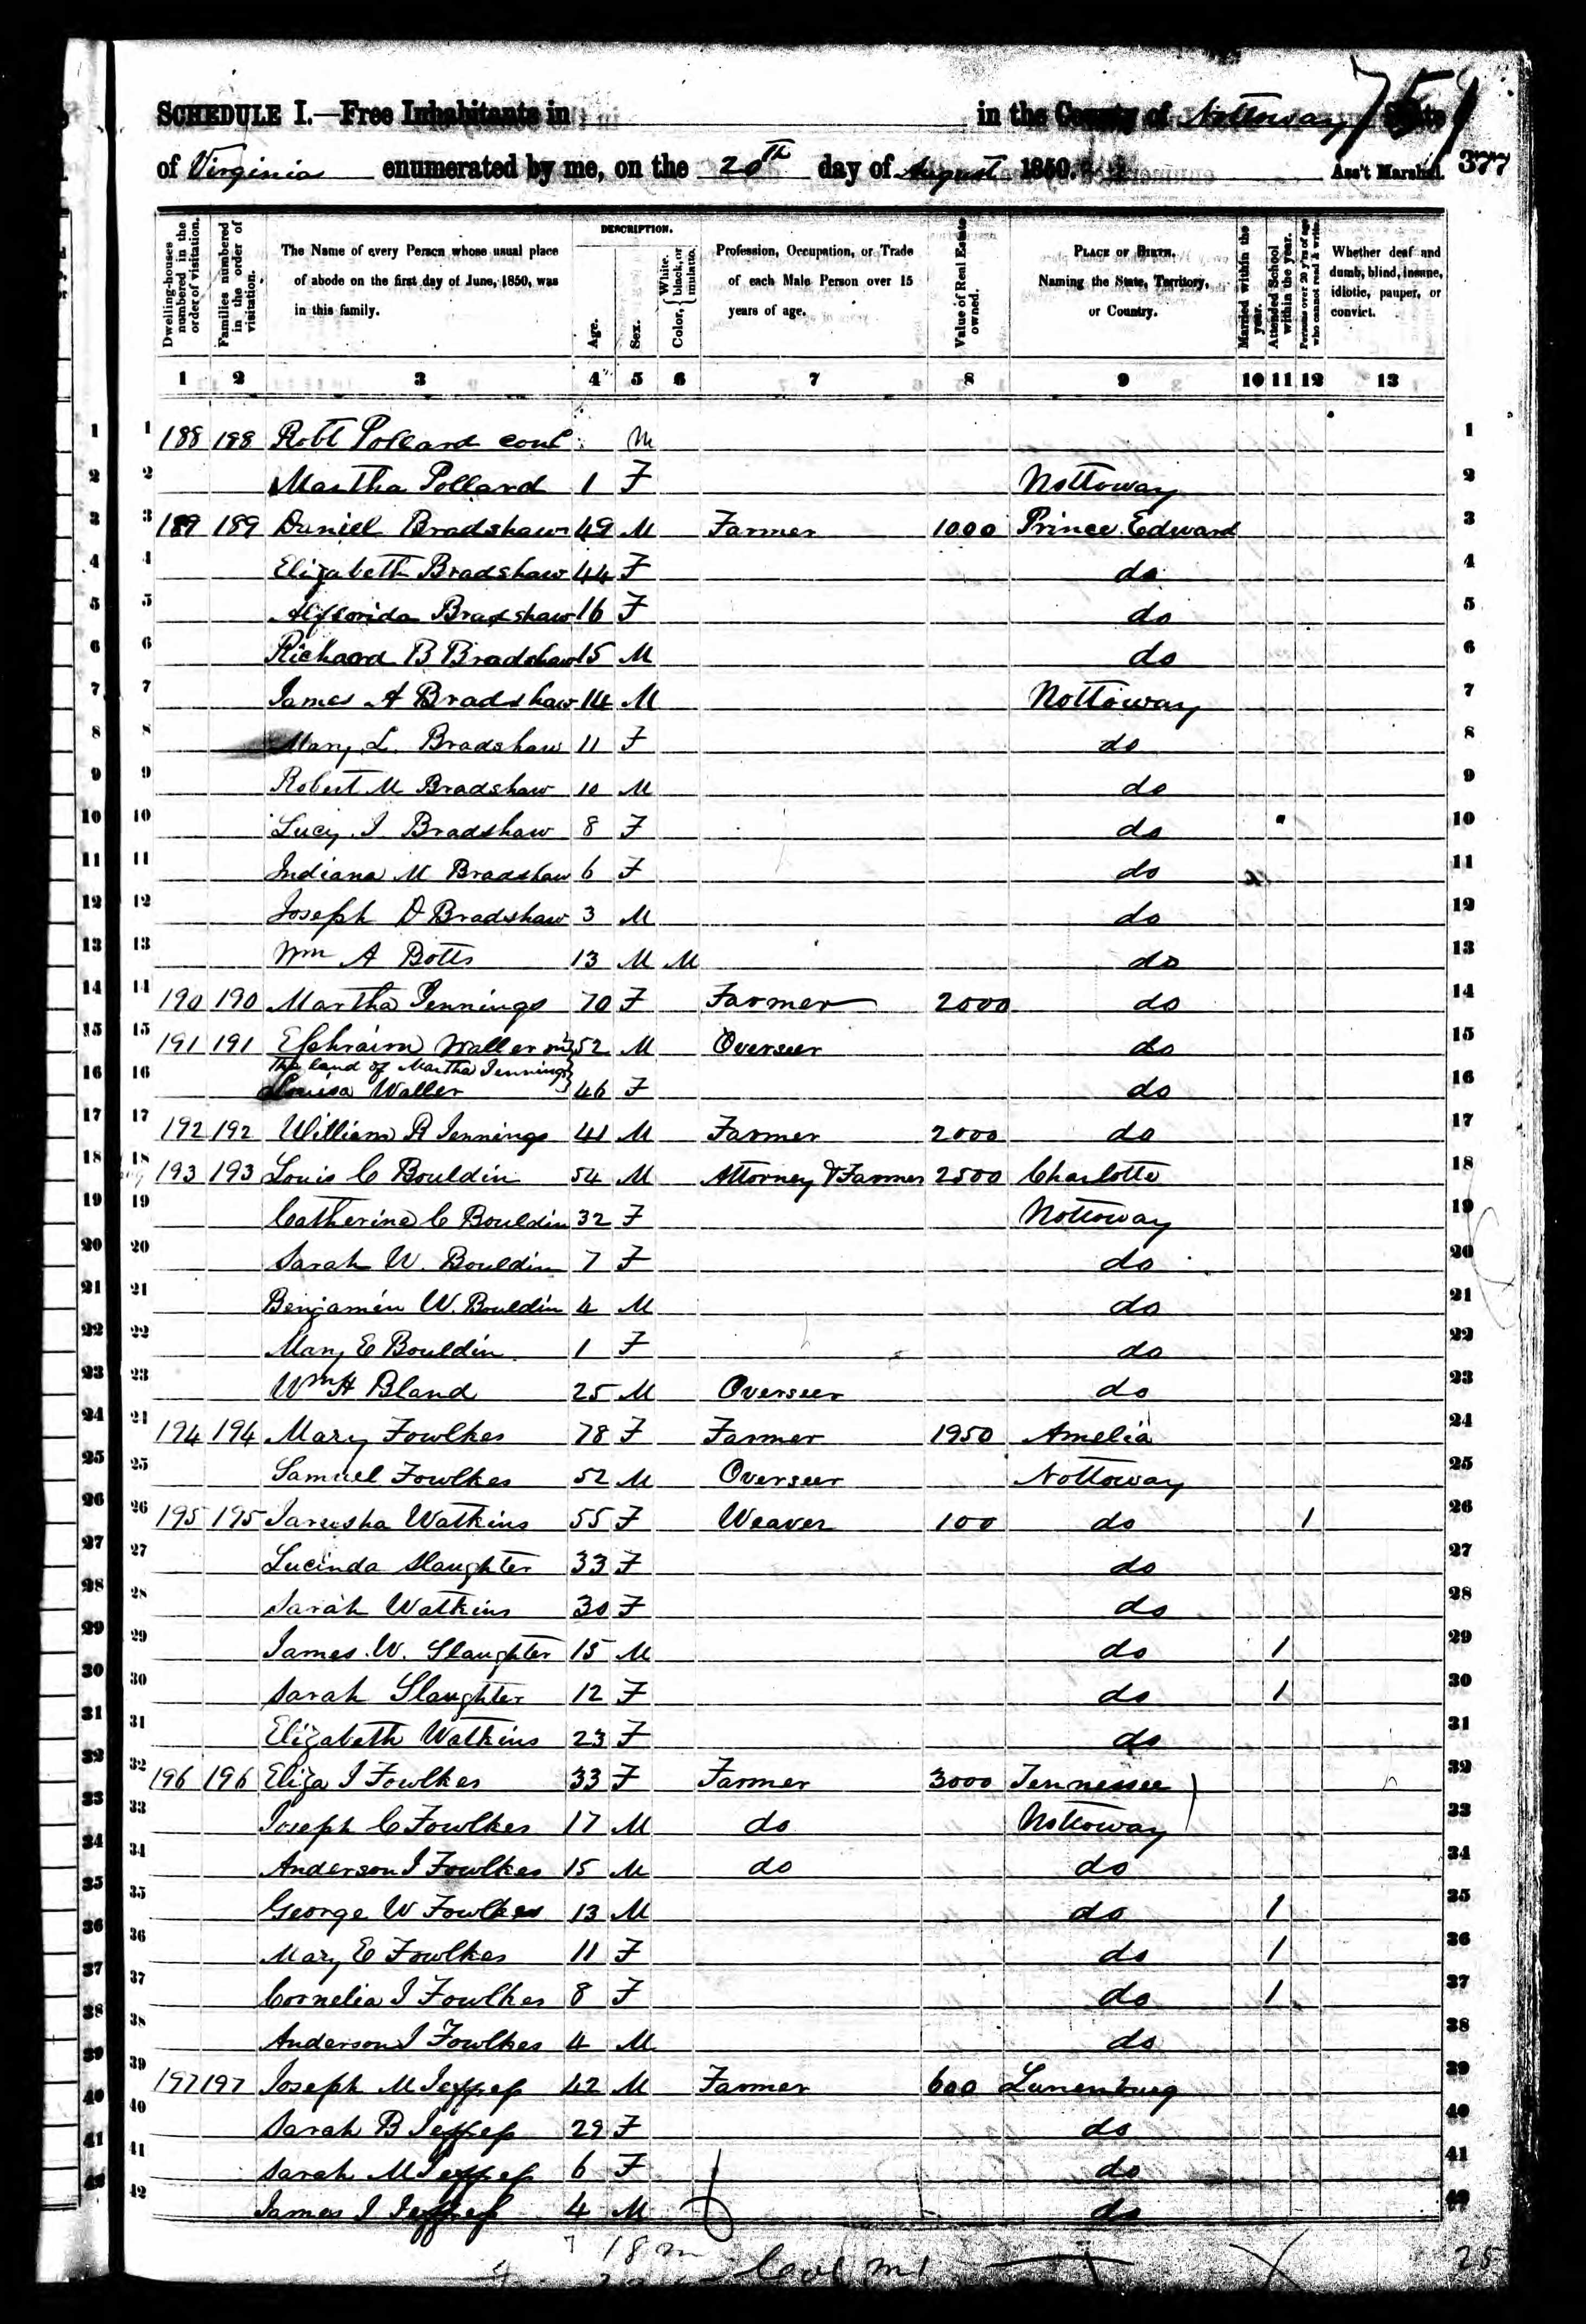 759
SCHEDULE I.—Free Inhabitants in in the County of Nottoway State
of Virginia enumerated by me, on the 20th day of August 1850. Ass't Marshal. 377
Dwelling-houses numbered in the order of visitation.
Families numbered in the order of visitation.
The Name of every Person whose usual place of abode on the first day of June, 1850, was in this family.
DESCRIPTION.
Age.
Sex.
Color, { White, black, or mulatto.
Profession, Occupation, or Trade of each Male Person over 15 years of age.
Value of Real Estate owned.
PLACE OF BIRTH. Naming the State, Territory, or Country.
Married within the year.
Attended School within the year.
Persons over 20 y'rs of age who cannot read & write.
Whether deaf and dumb, blind, insane, idiotic, pauper, or convict.
1 2 3 4 5 6 7 8 9 10 11 12 13
1 188 188 Robt Pollard cont M 1
2 Martha Pollard 1 F Nottoway 2
3 189 189 Daniell Bradshaw 49 M Farmer 1000 Prince Edward 3
4 Elizabeth Bradshaw 44 F do 4
5 Bradshaw 16 F do 5
6 Richard B Bradshaw 15 M do 6
7 James A Bradshaw 14 M Nottoway 7
8 Mary L. Bradshaw 11 F do 8
9 Robert M Bradshaw 10 M do 9
10 Lucy J Bradshaw 8 F do 10
11 Indiana M Bradshaw 6 F do 11
12 Joseph D Bradshaw 3 M do 12
13 Wm A Botts 13 M M do 13
14 190 190 Martha Jennings 70 F Farmer 2000 do 14
15 191 191 Ephraim Waller on 52 M Overseer do 15
the land of Martha Jennings
16 Louisa Waller 46 F do 16
17 192 192 William R Jennings 41 M Farmer 2000 do 17
18 193 193 Louis C Bouldin 54 M Attorney & Farmer 2500 Charlotte 18
19 Catherine C Bouldin 32 F Nottoway 19
20 Sarah W. Bouldin 7 F do 20
21 Benjamin W. Bouldin 4 M do 21
22 Mary E Bouldin 1 F do 22
23 Wm H Bland 25 M Overseer do 23
24 194 194 Mary Fowlkes 78 F Farmer 1950 Amelia 24
25 Samuel Fowlkes 52 M Overseer Nottoway 25
26 195 195 Watkins 55 F Weaver 100 do 1 26
27 Lucinda Slaughter 33 F do 27
28 Sarah Watkins 30 F do 28
29 James W. Slaughter 15 M do 1 29
30 Sarah Slaughter 12 F do 1 30
31 Elizabeth Watkins 23 F do 31
32 196 196 Eliza J Fowlkes 33 F Farmer 3000 Tennessee 32
33 Joseph C Fowlkes 17 M do Nottoway 33
34 Anderson J Fowlkes 15 M do do 34
35 George W Fowlkes 13 M do 1 35
36 Mary E Fowlkes 11 F do 1 36
37 Cornelia J Fowlkes 8 F do 1 37
38 Anderson J Fowlkes 4 M do 38
39 197 197 Joseph M Jeffress 42 M Farmer 600 Lunenburg 39
40 Sarah B Jeffress 29 F do 40
41 Sarah M Jeffress 6 F do 41
42 James J Jeffress 4 M do 42
18 m
25